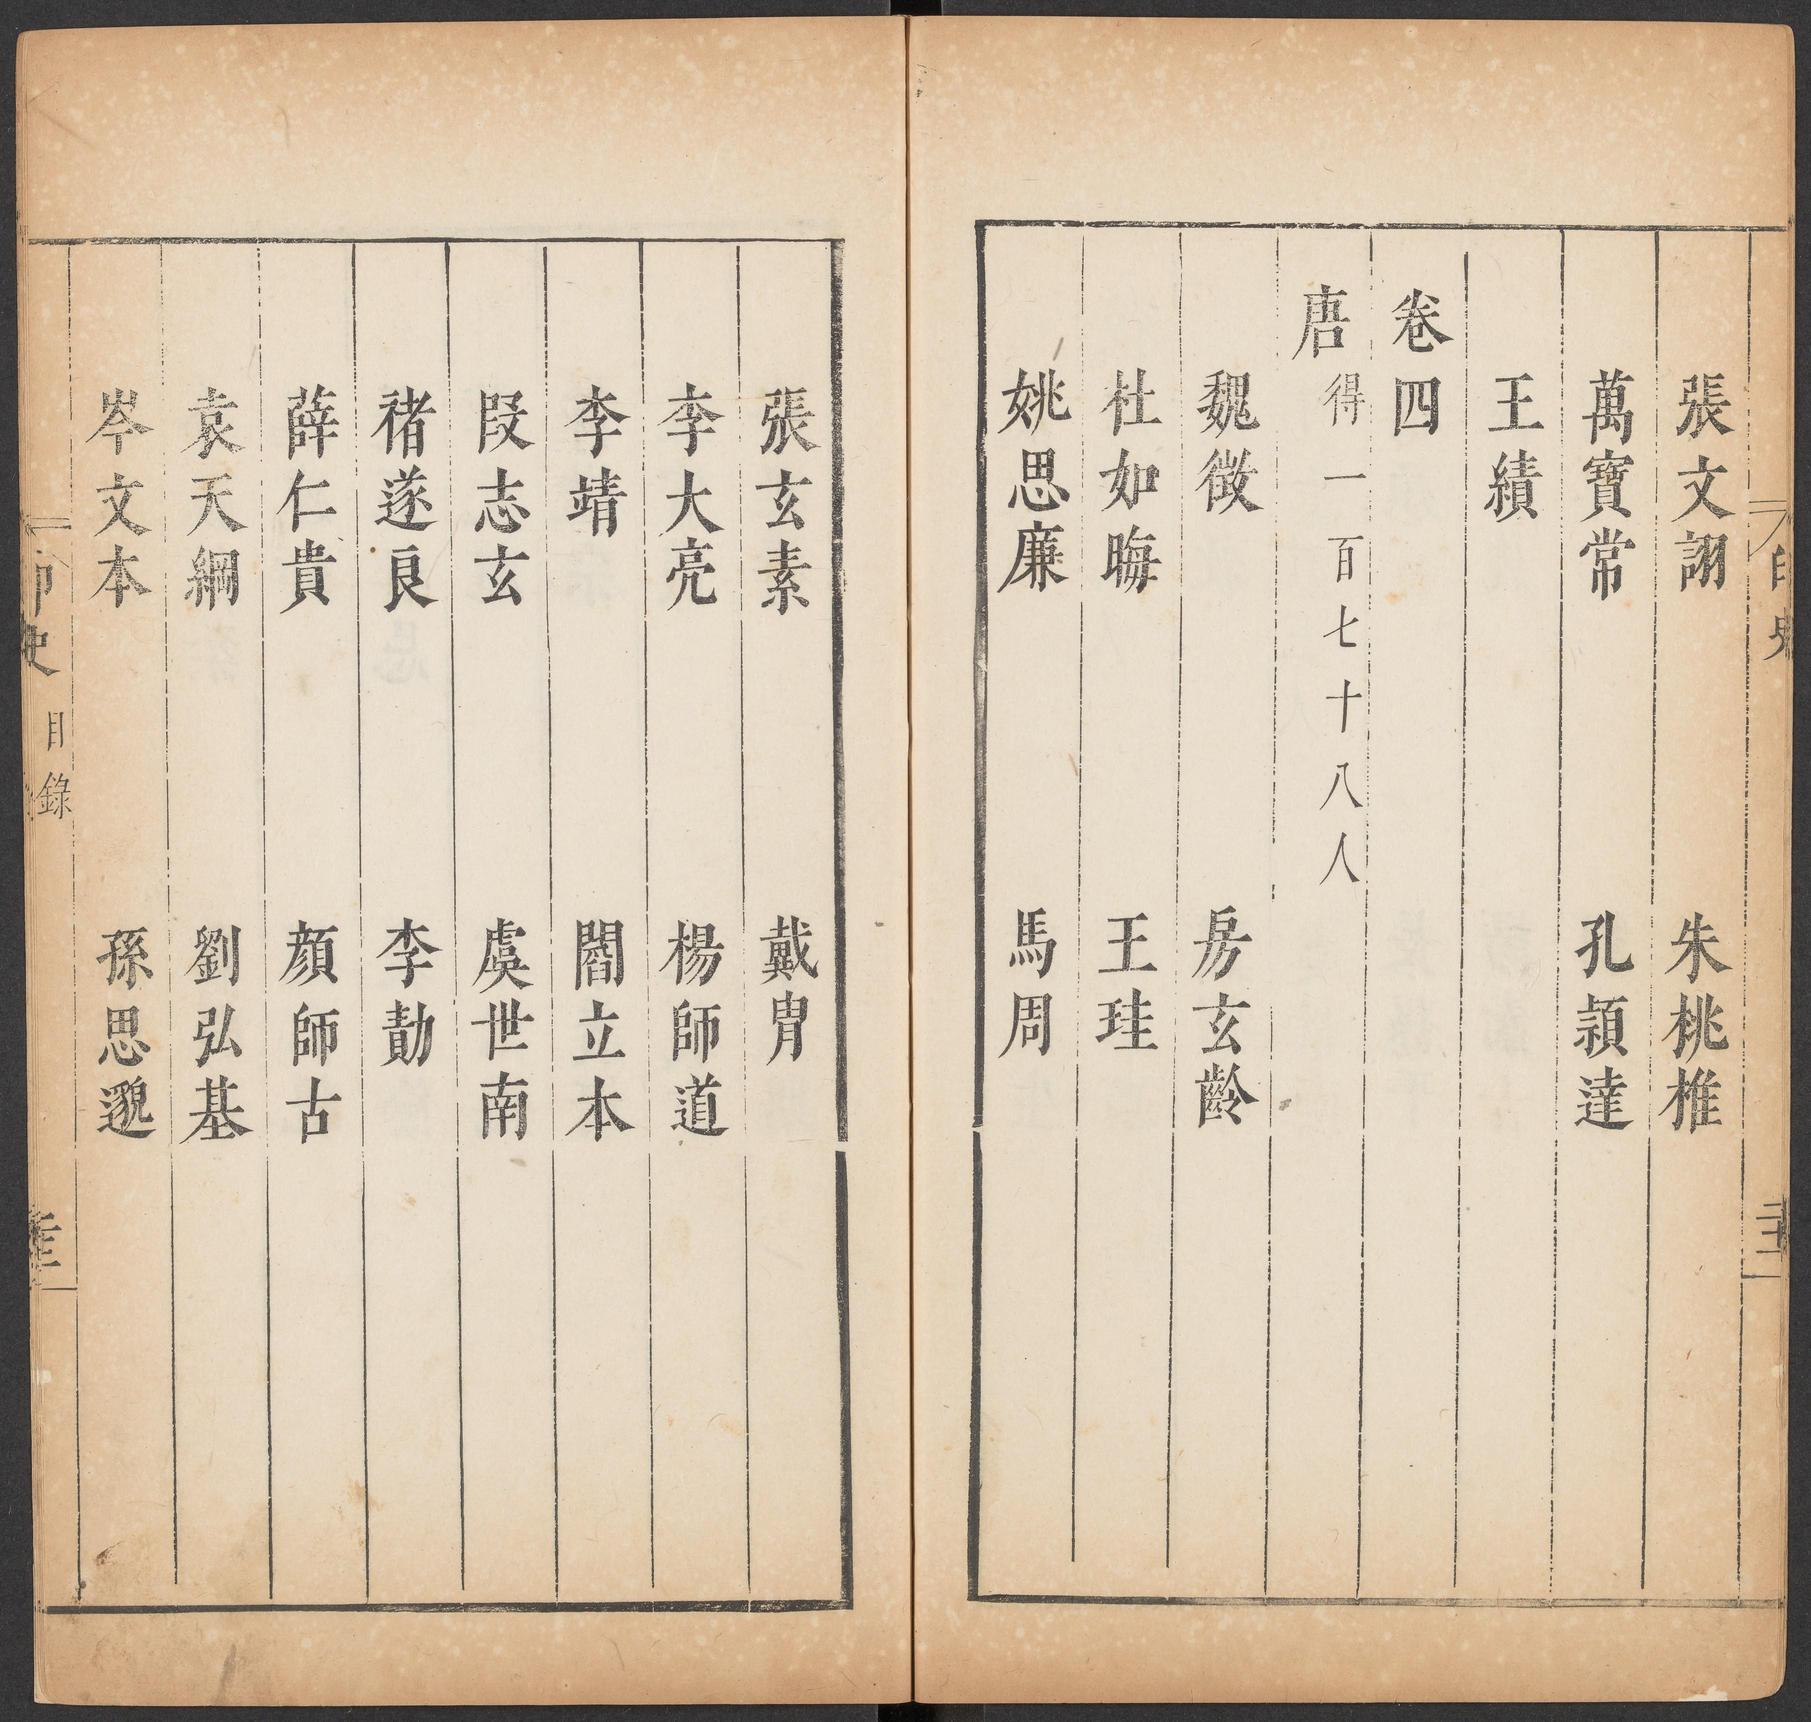 張文詡　朱桃椎
萬寶常　孔頴達
王績
卷四
唐得一百七十八人
魏徴　房玄齡
杜如晦　王珪
姚思廉　馬周
張玄素　戴胄
李大亮　楊師道
李靖　閻立本
段志玄　虞世南
禇遂良　李勣
薛仁貴　顏師古
袁天綱　劉弘基
岑文本　孫思邈
目錄